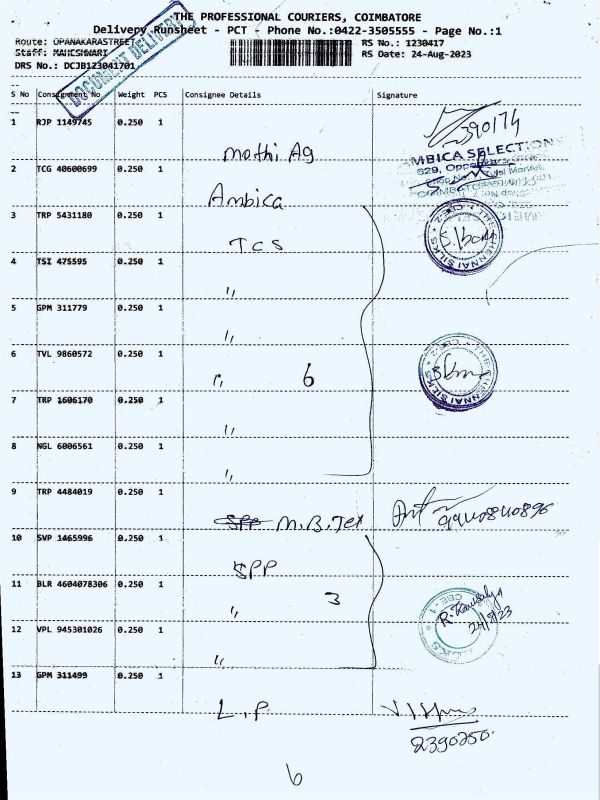 THE PROFESSIONAL COURIERS, COIMBATORE
Delivery Runsheet - PCT - Phone No.:0422-3505555 - Page No.:1
Route: OPANAKARASTREET
RS No.: 1230417
Staff: MAHESHWARI
RS Date: 24-Aug-2023
DRS No.: DCJB123041701
DOCUMENT DELIVERY
S No Consignment No Weight PCS Consignee Details Signature
1 RJP 1149745 0.250 1
Mathi Ag
390174
2 TCG 40600699 0.250 1
Ambica
AMBICA SELECTION
3 TRP 5431180 0.250 1
TCS
THE CHENNAI SILKS
4 TSI 475595 0.250 1
"
5 GPM 311779 0.250 1
"
6 TVL 9860572 0.250 1
" 6
THE CHENNAI SILKS CBE-2
7 TRP 1606170 0.250 1
"
8 NGL 6006561 0.250 1
"
9 TRP 4484019 0.250 1
SPP M.B.Tex
10 SVP 1465996 0.250 1
SPP
11 BLR 4604078306 0.250 1
" 3
CBE-1
24/8/23
12 VPL 945301026 0.250 1
"
13 GPM 311499 0.250 1
L.P
2390250
6